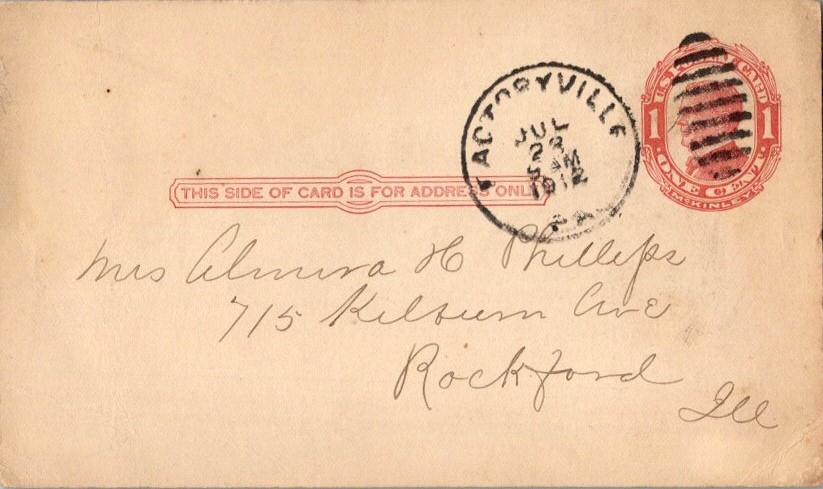 U.S. POSTAL CARD
1 1
ONE CENT
McKINLEY
FACTORYVILLE
JUL
AM
1912
PA.
THIS SIDE OF CARD IS FOR ADDRESS ONLY
Mrs Almira H Phillips
715 Kilburn Ave
Rockford
Ill